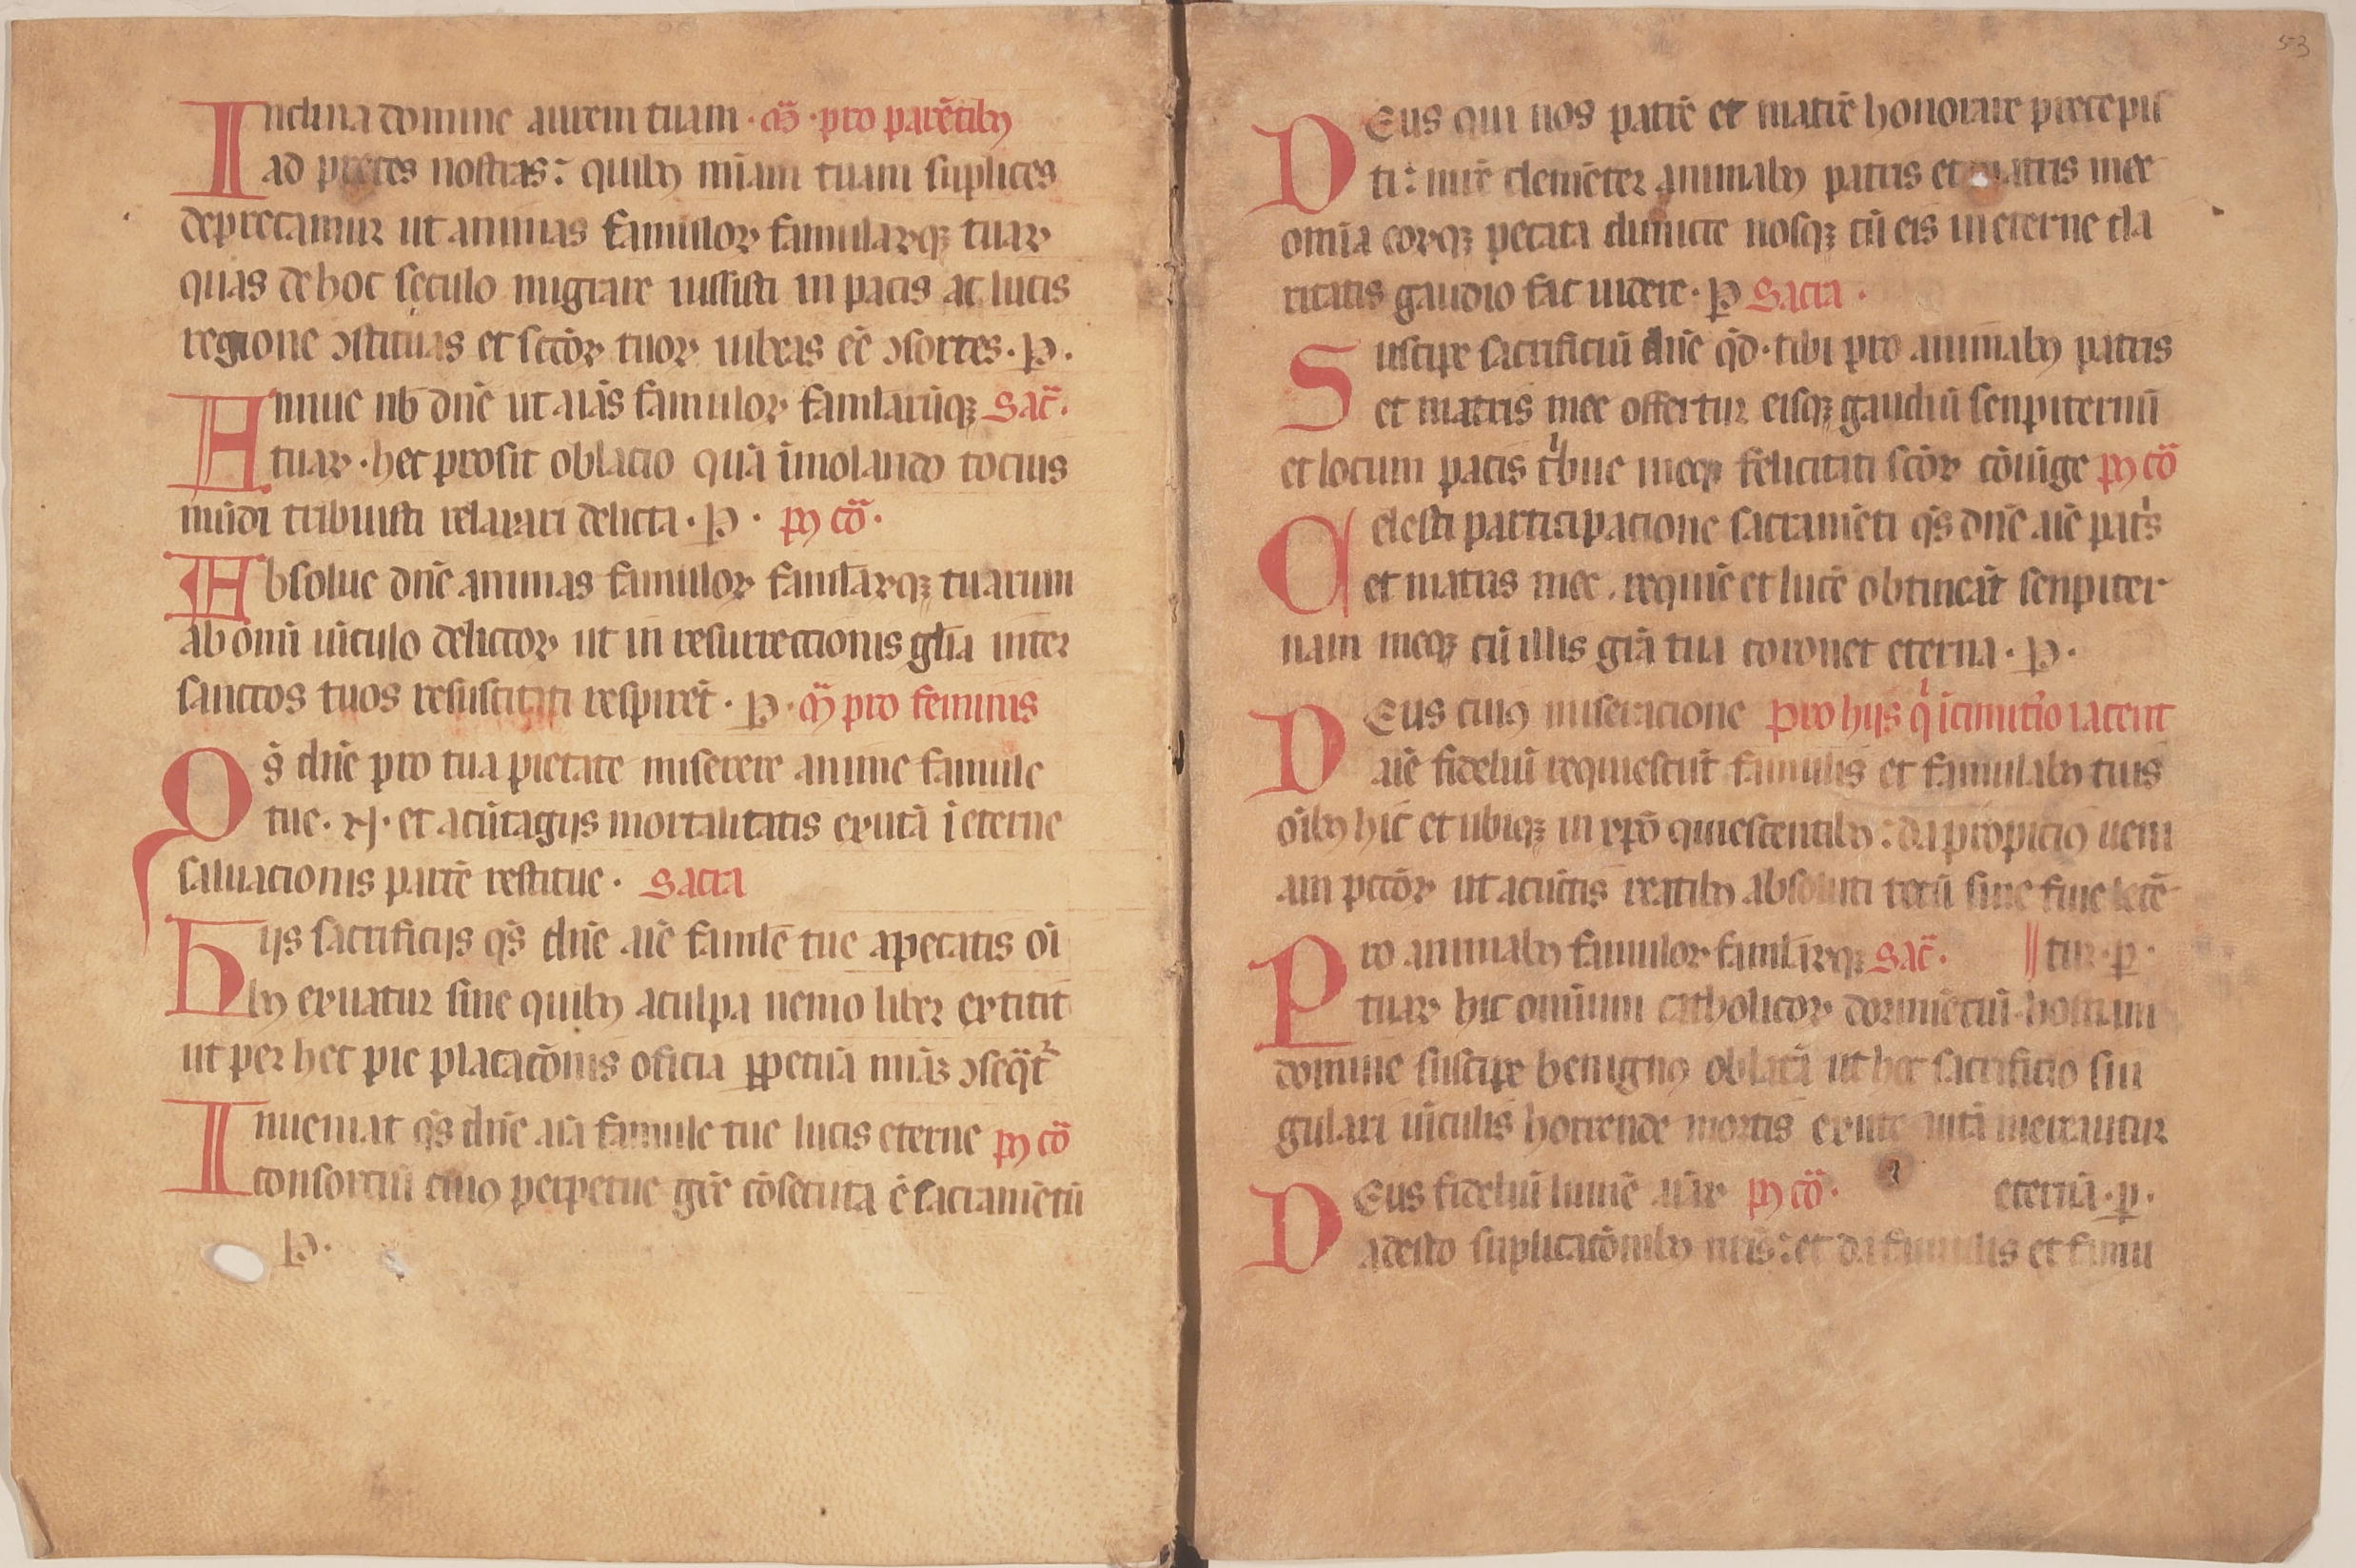 Inclina domine aurem tuam · om̄ · pro parētibꝫ
ad preces nostras: quibꝫ miam̄ tuam suplices
deprecamur ut animas famuloꝝ famularꝙ tuaꝝ
quas de hoc seculo migrare iussisti in pacis ac lucis
regione ↄstituas et sctōꝝ tuoꝝ iubeas eē ↄsortes · p̱ ·
Annue nb̄ dn̄e ut aiās famuloꝝ famlaruq̄ꝫ sac̄ ·
tuaꝝ · hec prosit oblacio quā īmolando tocius
mūdi tribuisti relaxari delicta · p̱ · pꝰ cō ·
Absolue dn̄e animas famuloꝝ faml̄arꝙ tuarum
ab om̄i uīculo delictoꝝ ut in resurrectionis gl̄ia inter
sanctos tuos resuscitati respirēt · p̱ · om̄ pro feminis
Qs̄ dn̄e pro tua pietate miserere anime famule
tue · N · et a cūtagijs mortalitatis exutā ī eterne
saluacionis partē restitue · Sacra
Hijs sacrificijs qs̄ dn̄e aīe famlē tue a pecatis oī
bꝫ exuatur sine quibꝫ a culpa nemo liber extitit
ut per hec pie placacōnis oficia ꝑpetuā miāȝ ↄseq̄t᷑
Inueniat qs̄ dn̄e aiā famule tue lucis eterne pꝰ cō
consorciū cuiꝰ perpetue grē cōsecuta ē sacramētū
p̱ ·
53
Deus qui nos patrē et matrē honorare precepis
ti: mīē clemēter animabꝫ patris et matris mee
omīa eorꝙ pecata dimicte nosqꝫ cū eis in eterne cla
ritatis gaudio fac uidere · p̱ Sacra ·
Suscipe sacrificiū dn̄e qd̄ · tibi pro animabꝫ patris
et matris mee offertur eisqꝫ gaudiū senpiternū
et locum pacis tͥbue meqꝫ felicitati scōꝝ cōiūge pꝰ cō
Celesti participacione sacramēti qs̄ dn̄e aīe patͥs
et matris mee · requiē et lucē obtineāt senpiter
nam meqꝫ cū illis grā tua coronet eterna · p̱ ·
Deus cuiꝰ miseracione pro hijs qͥ ī cimitͥio iacent
aīe fideliū requiescūt famulis et famulabꝫ tuis
oībꝫ hic et ubiqꝫ in xpō quiescentibꝫ: da propiciꝰ ueni
am pctōꝝ ut a cūctis reatibꝫ absoluti tecū sine fine letē
Pro animabꝫ famuloꝝ faml̄arꝙ sac̄ · tur · p̱ ·
tuaꝝ hic om̄ium catholicoꝝ dormiētiū hostiam
domine suscipe benignꝰ oblatā ut hoc sacrificio sin
gulari uīculis horrende mortis exute uitā mereantur
Deus fideliū lumē aīaꝝ pꝰ cō · eternā · p̱ ·
adesto suplicacōnibꝫ nr̄is: et da famulis et famu